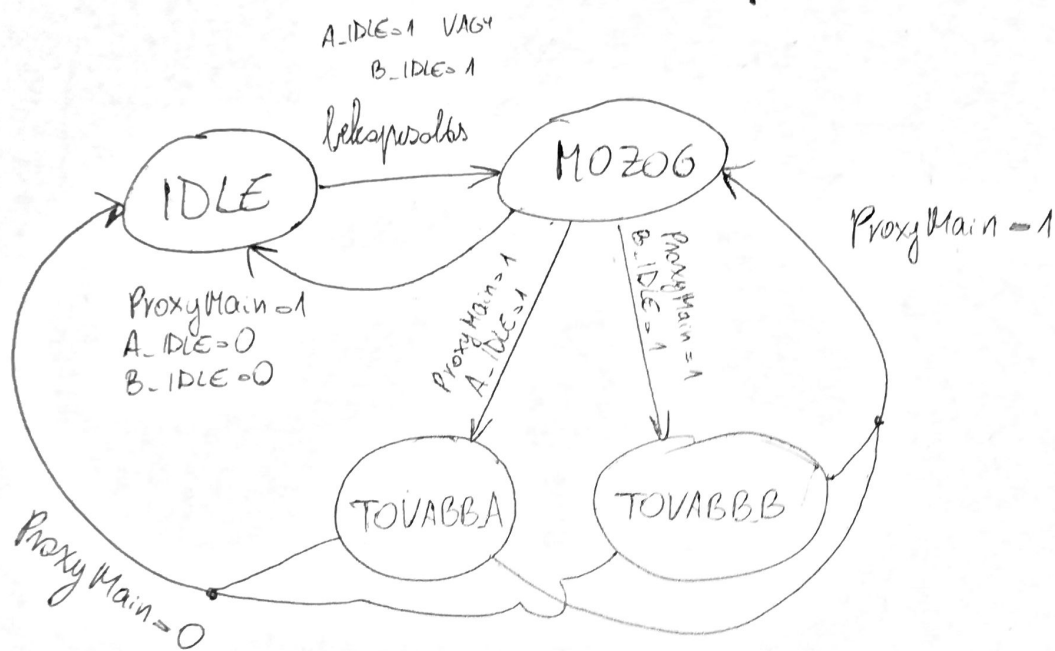 A_IDLE=1 VAGY
B_IDLE=1
bekapcsolás
IDLE
MOZOG
ProxyMain=1
ProxyMain=1
A_IDLE=0
B_IDLE=0
ProxyMain=1
A_IDLE=1
ProxyMain=1
B_IDLE=1
TOVABB_A
TOVABB_B
ProxyMain=0